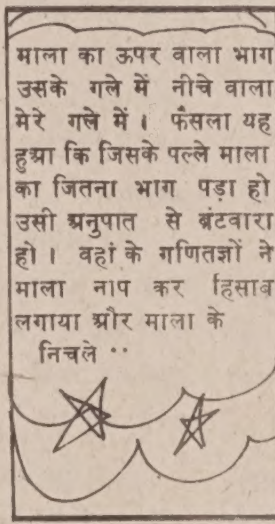 माला का ऊपर वाला भाग
उसके गले में नीचे वाला
मेरे गले में । फैसला यह
हुआ कि जिसके पल्ले माला
का जितना भाग पड़ा हो
उसी अनुपात से ब्रंटवारा
हो । वहां के गणितज्ञों ने
माला नाप कर हिसाब
लगाया और माला के
निचले ··